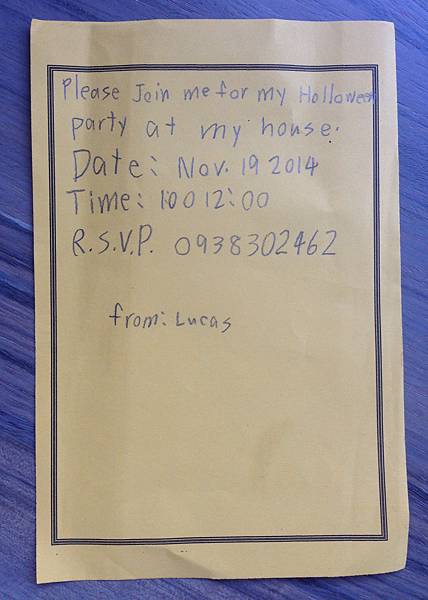 Please Join me for my Halloween
party at my house.
Date: Nov. 19 2014
Time: 1:00 12:00
R.S.V.P. 0938302462
from: Lucas